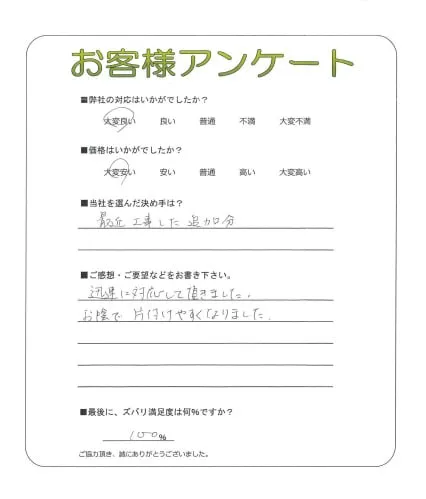 お客様アンケート
■弊社の対応はいかがでしたか？
大変良い 良い 普通 不満 大変不満
■価格はいかがでしたか？
大変安い 安い 普通 高い 大変高い
■当社を選んだ決め手は？
最近工事した追加分
■ご感想・ご要望などをお書き下さい。
迅速に対応して頂きました。
お陰で片付けやすくなりました。
■最後に、ズバリ満足度は何％ですか？
100％
ご協力頂き、誠にありがとうございました。